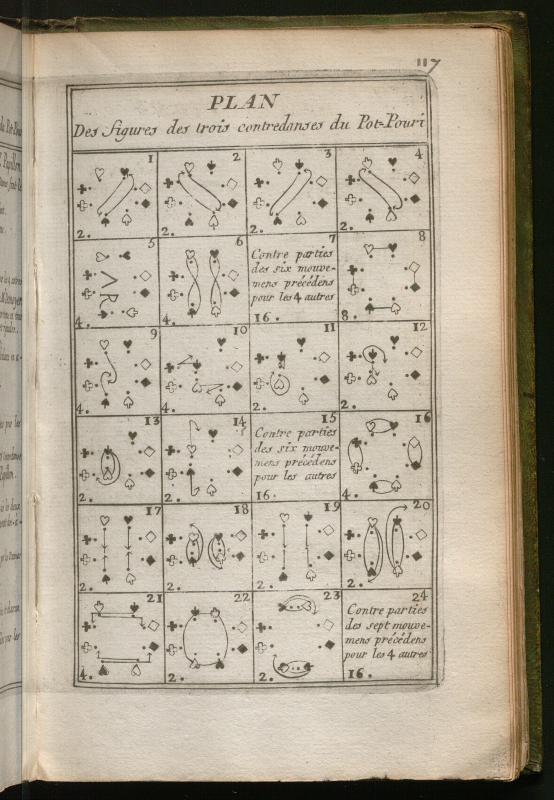 117
PLAN
Des figures des trois contredanses du Pot-Pouri
1 2 3 4
2. 2. 2. 2.
5 6 7 8
Contre parties
des six mouve-
mens précédens
pour les 4 autres
4. 4. 16. 8.
9 10 11 12
4. 4. 2. 2.
13 14 15 16
Contre parties
des six mouve-
mens précédens
pour les autres
2. 2. 16. 4.
17 18 19 20
2. 2. 2. 2.
21 22 23 24
Contre parties
des sept mouve-
mens précédens
pour les 4 autres
4. 2. 2. 16.